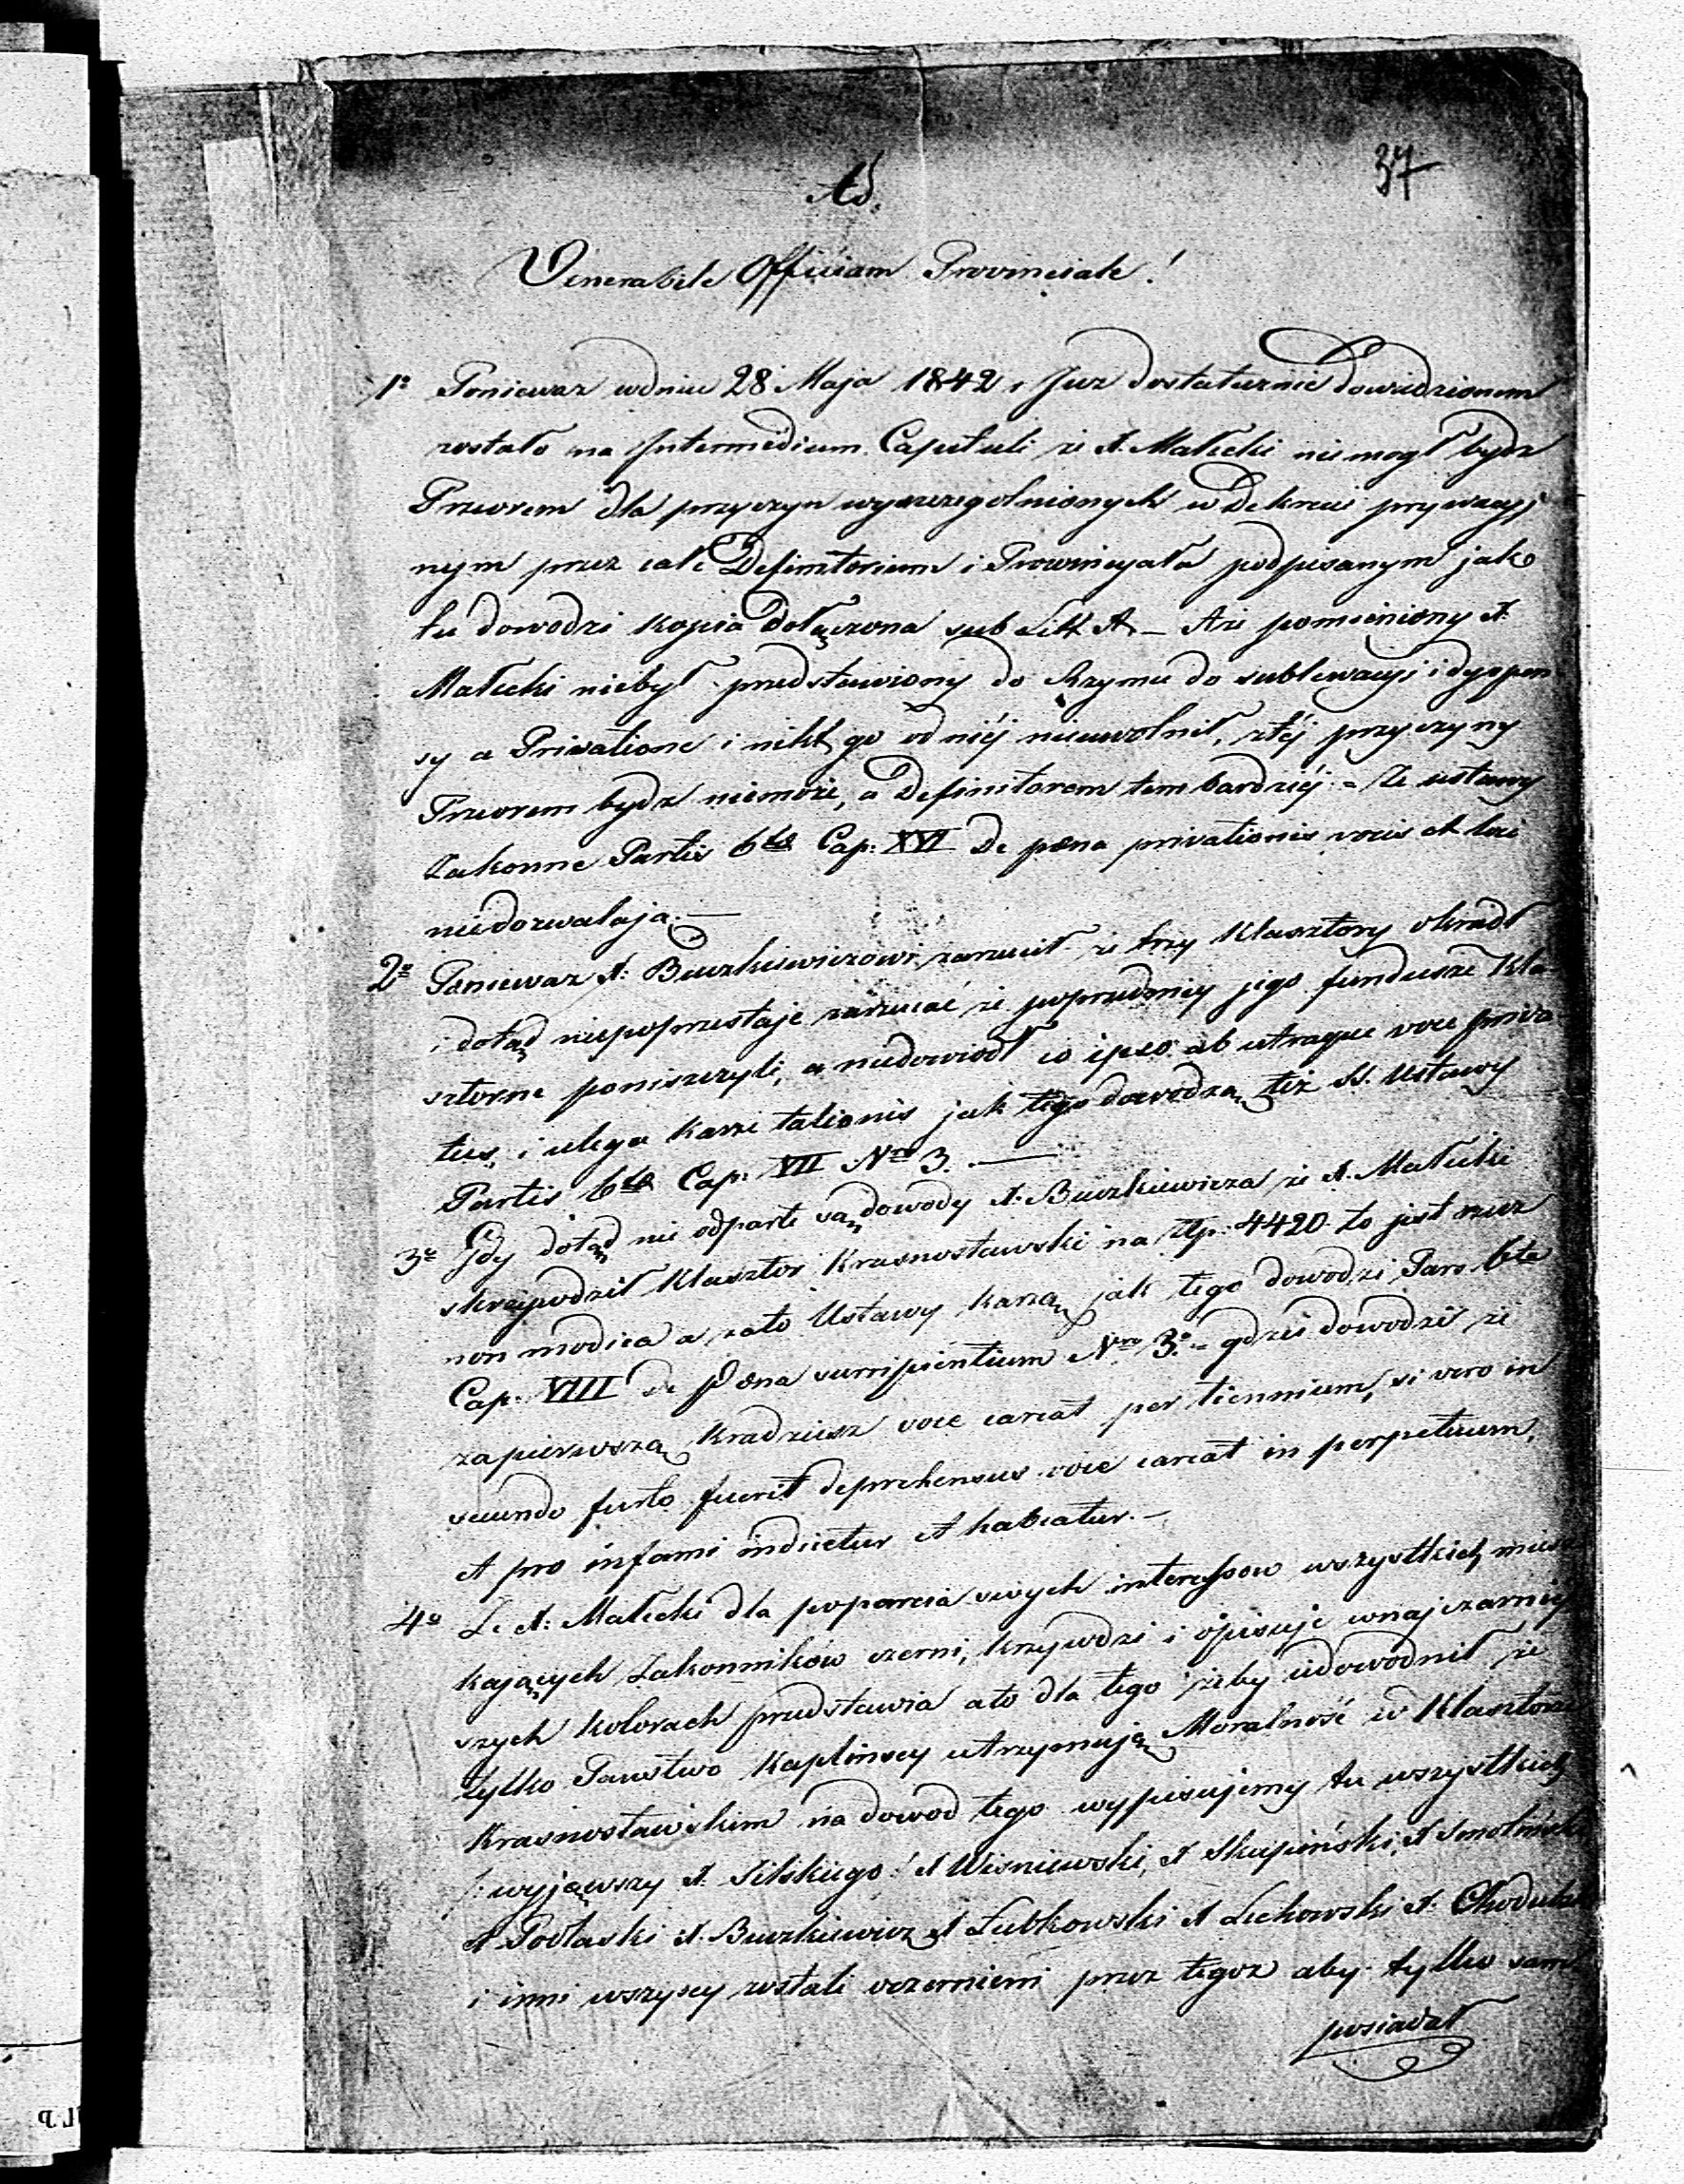 37
Ad.
Venerabile Officium Provinciale!
1º Poniewaz wdniu 28 Maja 1842 r Juz dostatecznie dowiedzionem
zostało na Intermedium Capituli że X. Małecki niemogł bydz
Przeorem dla przyczyn wyszczegolnionych w Dekrecie prywacyj
nym przez całe Definitorium i Prowincyała podpisanym jako
tu dowodzi kopia dołączona sub Litt A. — A że pomieniony X.
Małecki niebył przedstawiony do Rzymu do sublewacyi i dyspen
sy a Privatione i nikt go od niéj nieuwolnił, z téj przyczyny
Przeorem bydz niemoże, a Definitorem tem bardziéj = Ze ustawy
Zakonne Partis 6ta Cap: XVI De pœna privationis vocis et loci
niedozwalają. —
2º Poniewaz X: Buczkiewiczowi zarzucił że trzy Klasztory okradł
i dotąd nieprzestaje zarzucać że poprzednicy jego fundusze Kla
sztorne poniszczyli, a niedowiodł eo ipso ab utraque voce priva
tus, i ulega karze talionis jak tego dowodzą też SS. Ustawy
Partis 6ta Cap: VII Nro 3. —
3º Gdy dotąd nie odparte są dowody X. Buczkiewicza że X. Małecki
skrzywdził Klasztor Krasnostawski na Złp: 4420 to jest rzecz
non modica a zato Ustawy karzą jak tego dowodzi Pars 6ta
Cap: VIII de Pœna surripientium Nro 3º = gdzie dowodzi że
zapierwszą kradziesz voce careat per tiennium, si vero in
secundo furto fuerit deprehensus voce careat in perpetuum,
et pro infami indicetur et habeatur. —
4º Ze X: Małecki dla poparcia swych interessow wszystkich miesz
kających Zakonników czerni, krzywdzi i opisuje wnajczarniej
szych kolorach przedstawia a to dla tego żeby udowodnił że
tylko Państwo Kaplinscy utrzymują Moralność w Klasztorze
Krasnostawskim na dowod tego wypisujemy tu wszystkich
/: wyjąwszy X. Silskiego! X Wisniewski, X Skupiński, X Smoleński
X Podlaski X. Buczkiewicz X Lubkowski X Lechowski X.
i inni wszyscy zostali oczernieni przez tegoz aby tylko sam
posiadał